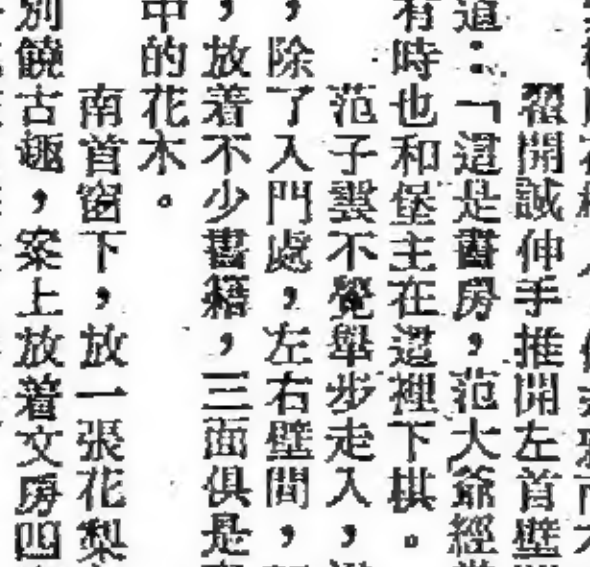 翟開誠伸手推開左首壁
道：「這是書房，范大爺經
有時也和堡主在這裡下棋。
范子雲不覺舉步走入，
，除了入門處，左右壁間，
，放着不少書籍，三面俱是
中的花木。
南首窗下，放一張花梨
別饒古趣，案上放着文房四